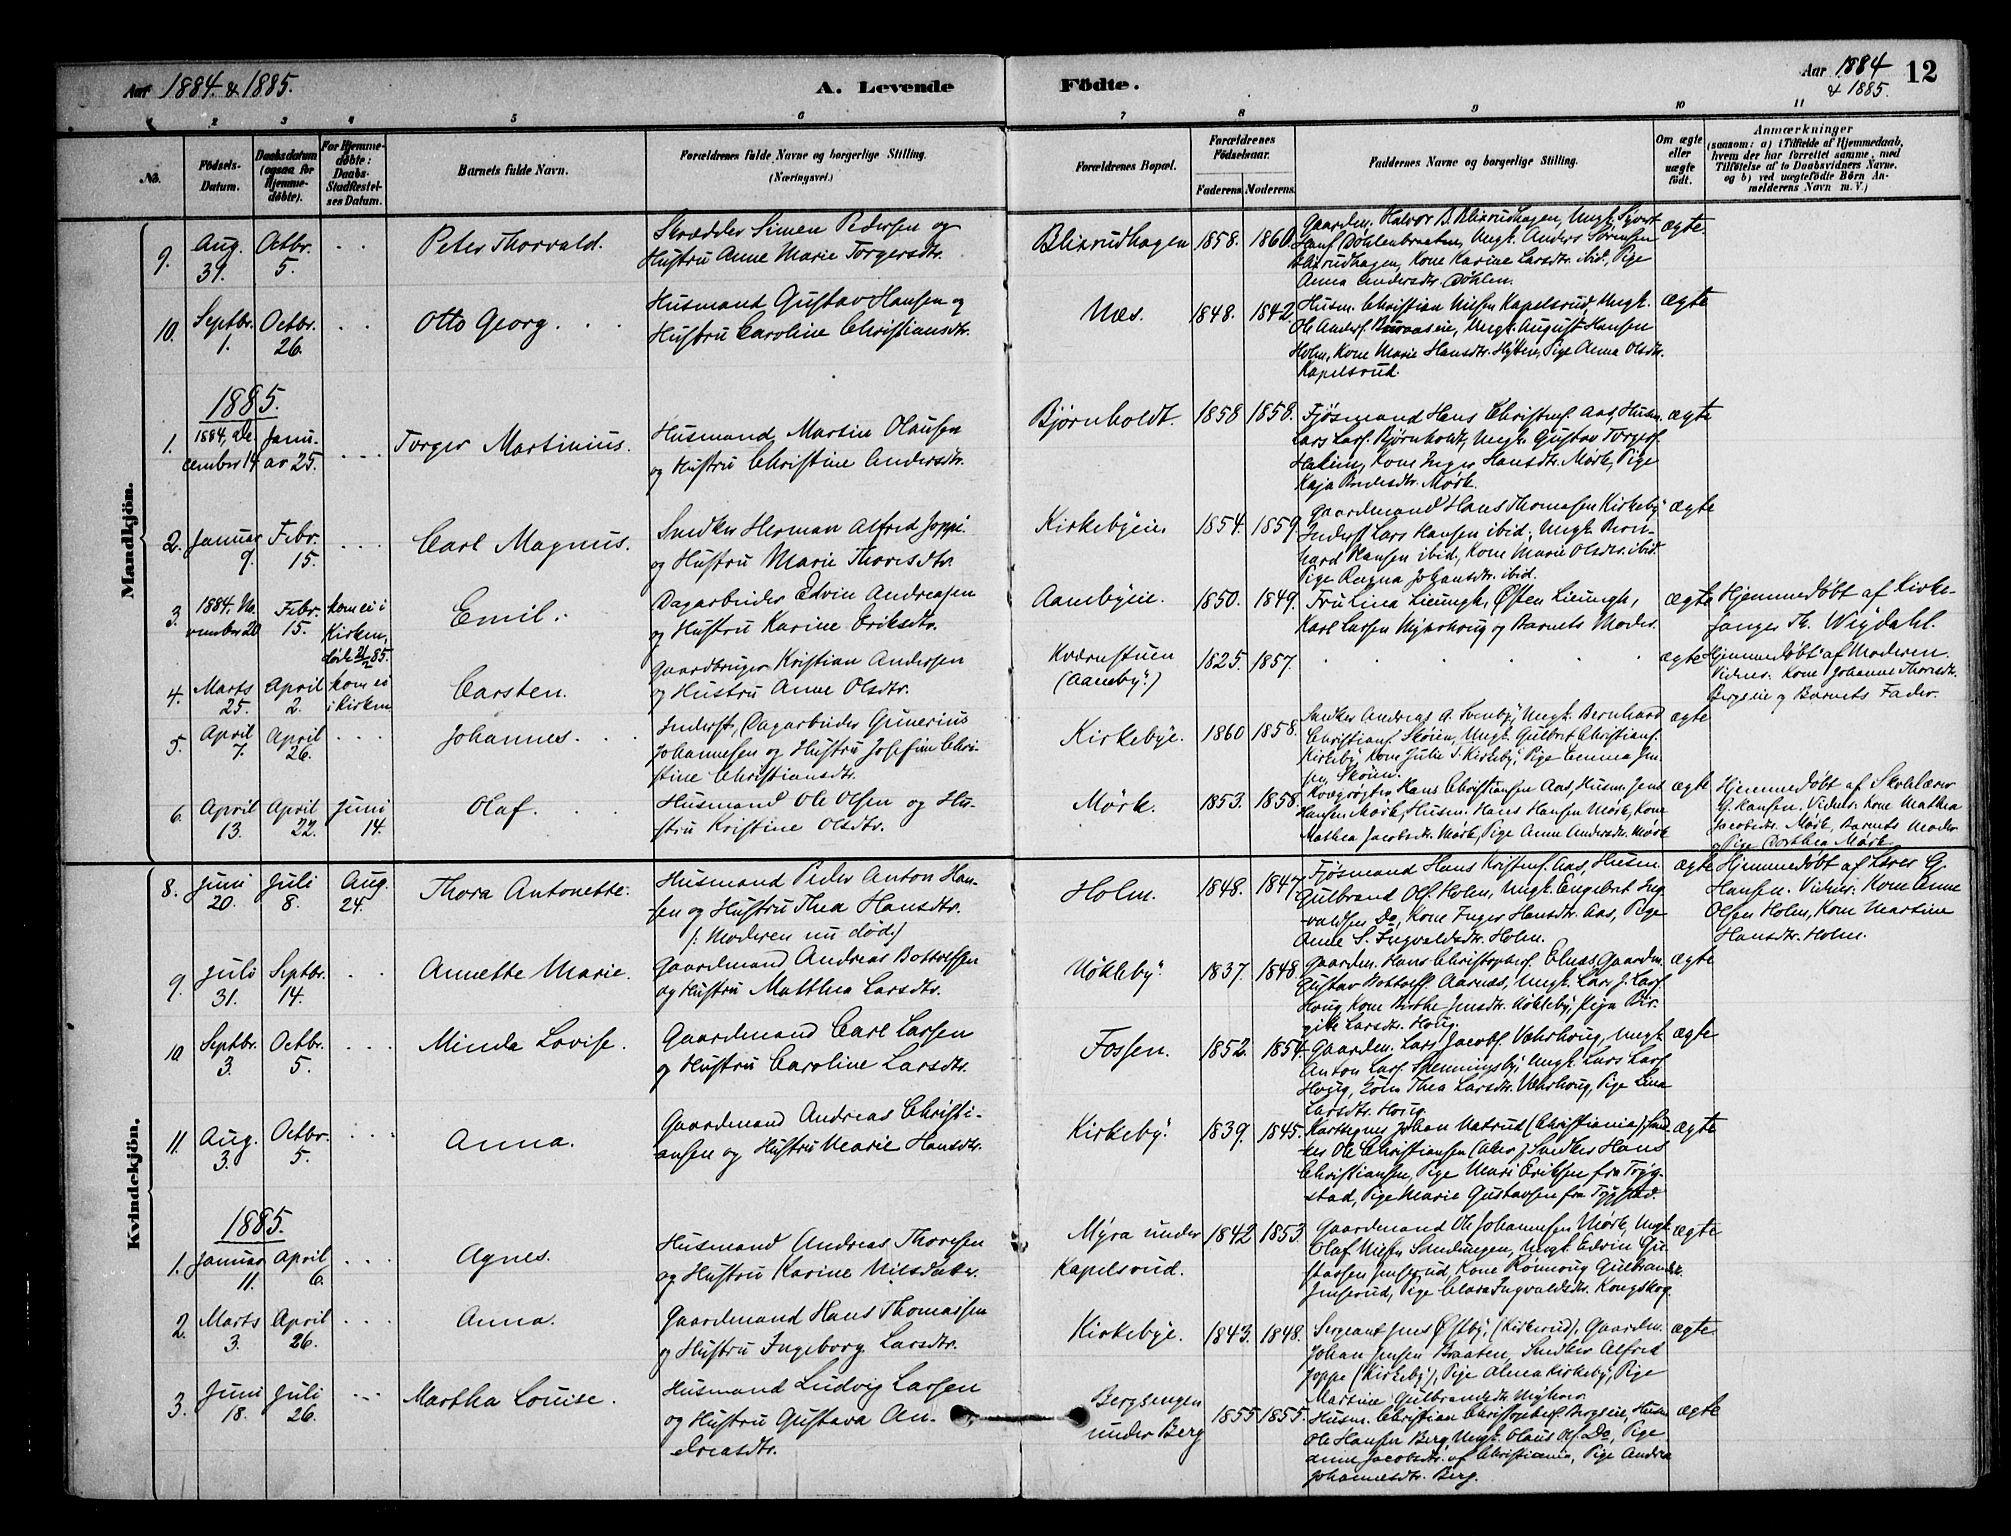 Aar 1884 & 1885.
A. Levende
Födte.
Aar 1884
& 1885.
12
1 2 3 4 5 6 7 8 9 10 11
No.
Födsels-
Datum.
Daabsdatum
(ogsaa for
Hjemme-
døbte).
For Hjemme-
døbte:
Daabs-
Stadfæstel-
ses Datum.
Barnets fulde Navn.
Forældrenes fulde Navne og borgerlige Stilling.
(Næringsvei.)
Forældrenes Bopæl.
Forældrenes
Födselsaar.
Faderens. Moderens.
Faddernes Navne og borgerlige Stilling.
Om ægte
eller
uægte
født.
Anmærkninger
(saasom: a) i Tilfælde af Hjemmedaab,
hvem der har forrettet samme, med
Tilföielse af to Daabsvidners Navne.
og b) ved uægtefödte Börn An-
melderens Navn m. V.)
Mandkjön.
9. Aug. 31. Octbr. 5. Peter Thorvald.
Skrædder Simen Pedersen og
Hustru Anne Marie Torgersdtr.
Blixrudhagen 1858. 1860.
Gaardm. Halvor B. Blixrudhagen, Ungk. Syvert
Hansf. Döhlenbraaten, Ungk. Anders Sörensen
Blixrudhagen, Kone Karine Larsdtr. ibid., Pige
Anna Andersdtr. Döhlen.
ægte.
10. Septbr. 1. Octbr. 26. Otto Georg.
Husmand Gustav Hansen og
Hustru Caroline Christiansdtr.
Næs. 1848. 1842.
Husm. Christian Nielsen Kapelsrud, Ungk.
Ole Andersf. , Ungk. August Hansen
Holm, Kone Marie Hansdtr. Hytten, Pige Anna Olsdtr.
Kapelsrud.
ægte
1885.
1. 1884, De-
cember 14. Janu-
ar 25. Torger Martinius.
Husmand Martin Olausen
og Hustru Christine Andersdtr.
Bjørnholdt. 1858 1858.
Fjösmand Hans Christensf. Aas, Husm.
Lars Larsf. Bjørnholdt, Ungk. Gustav Torgersf.
, Kone Inger Hansdtr. Mørk, Pige
Kaja Mørk.
ægte
2. Januar 9. Febr. 15. Carl Magnus.
Snedker Herman Alfred Joppe
og Hustru Marie Thoresdtr.
Kirkebyeie. 1854. 1859.
Gaardmand Hans Thomasen Kirkeby
Inderst Lars Hansen ibid., Ungk. Bern-
hard Hansen ibid., Kone Marie Olsdtr. ibid.
Pige Ragna Johansdtr. ibid.
ægte
3. 1884. No-
vember 20 Febr. 15. kom ei i
Kirken,
døde 21/2 85. Emil.
Dagarbeider Edvin Andreasen
og Hustru Karine Eriksdtr.
Aamebyeie. 1850. 1849.
Fru Lina Lieungh, Østen Lieungh,
Karl Larsen Myrerhoug og Barnets Moder.
ægte
Hjemmedøbt af Kirke-
sanger Th. Wigdahl.
4. Marts 25. April 2. kom ei
i Kirken Carsten.
Gaardbruger Kristian Andersen
og Hustru Anne Olsdtr.
Kværnstuen
(Aameby.) 1825. 1857.
ægte
Hjemmedøbt af Moderen.
Vidner: Kone Johanne Thoresdtr.
Bergeie og Barnets Fader.
5. April 7. April 26. Johannes.
Inderst, Dagarbeider Gunerius
Johannesen og Hustru Josefine Chri-
stine Christiansdtr.
Kirkebye. 1860 1858.
Snedker Andreas A. Svenby, Ungk. Bernhard
Christiansf. Skøien, Ungk. Gulbr. Christiansf.
Kirkeby, Kone Julie S. Kirkeby, Pige Emma Jen-
sen, Skøien.
ægte
6. April 13. April 22. Juni 14. Olaf.
Husmand Ole Olsen og Hu-
stru Kristine Olsdtr.
Mørk. 1853. 1858.
Kvægrøgter Hans Christiansen Aas, Husm. Jens
Hansen Mørk, Husm. Hans Hansen Mørk, Kone
Mathea Jacobsdtr. Mørk, Pige Anne Andersdtr. Mørk
ægte
Hjemmedøbt af Skolelærer
G. Hansen. Vidner: Kone Mathea
Jacobsdtr. Mørk, Barnets Moder
og Pige Dorthea Mørk.
Kvindekjön.
8. Juni 20. Juli 8. Aug. 24. Thora Antonette.
Husmand Peder Anton Han-
sen og Hustru Thea Hansdtr.
(: Moderen nu död.)
Holm. 1848. 1847.
Fjösmand Hans Kristensf. Aas, Husm.
Gulbrand Olsf. Holm, Ungk. Engebret Ing-
valdsen Do, Kone Inger Hansdtr. Aas, Pige
Anne S. Ingvaldsdtr. Holm.
ægte
Hjemmedøbt af Lærer G.
Hansen. Vidner: Kone Anne
Olsen Holm, Kone Martine
Hansdtr. Holm.
9. Juli 31. Septbr. 14. Annette Marie.
Gaardmand Andreas Bottolfsen
og Hustru Matthea Larsdtr.
Nökleby 1837. 1848.
Gaardm. Hans Christophersf. , Gaardm.
Gustav Bottolfsf. Aarnæs, Ungk. Lars J. Larsf.
Houg, Kone Birthe Jensdtr. Nökleby, Pige Bir-
gitte Larsdtr. Houg.
ægte
10 Septbr. 3. Octbr. 5. Minda Lovise.
Gaardmand Carl Larsen
og Hustru Caroline Larsdtr.
Fossen. 1852. 1854.
Gaardm. Lars Jacobsf. Væhrhoug, Ungk.
Anton Larsf. Spenningsby, Ungk. Lars Larsf.
Houg, Kone Thea Larsdtr. Væhrhoug, Pige Lina
Larsdtr. Houg.
ægte
11. Aug. 3. Octbr. 5. Anna.
Gaardmand Andreas Christi-
ansen og Hustru Marie Hansdtr.
Kirkeby. 1839. 1845.
Johan Natrud (Christiania), Sned-
ker Ole Christiansen (Aker), Snedker Hans
Christiansen, Pige Mari Eriksen fra Trøg-
stad, Pige Marie Gustavsen fra Trøgstad.
ægte
1885.
1. Januar 11. April 6. Agnes.
Husmand Andreas Thoresen
og Hustru Karine Nilsdatter.
Myra under
Kapelsrud. 1842 1853.
Gaardmand Ole Johannesen Mørk, Ungk.
Olaf Nielsen Sandungen, Ungk. Edvin Gu-
stavsen Jinsrud, Kone Rønnoug Gulbrandsdtr.
Jinsrud, Pige Clara Ingvaldsdtr. Kongskog
ægte
2. Marts 3. April 26. Anna.
Gaardmand Hans Thomassen
og Hustru Ingeborg Larsdtr.
Kirkebye. 1843. 1848.
Sergeant Jens Østby, (Kirkerud), Gaardm.
Johan Jensen Braaten, Snedker Alfred
Joppe (Kirkeby), Pige Alma Kirkeby, Pige
Martine Gulbrandsdtr.
ægte.
3. Juni 18. Juli 26. Martha Louise.
Husmand Ludvig Larsen
og Hustru Gustava An-
dreasdtr.
Bergsengen
under Berg 1855 1855.
Husm. Christian Christophersf. Bergseie, Husm.
Ole Hansen Berg, Ungk. Olaus Olsf. Do, Pige
Anne Jacobsdtr. af Christiania, Pige Andrea
Johannesdtr. Berg.
ægte